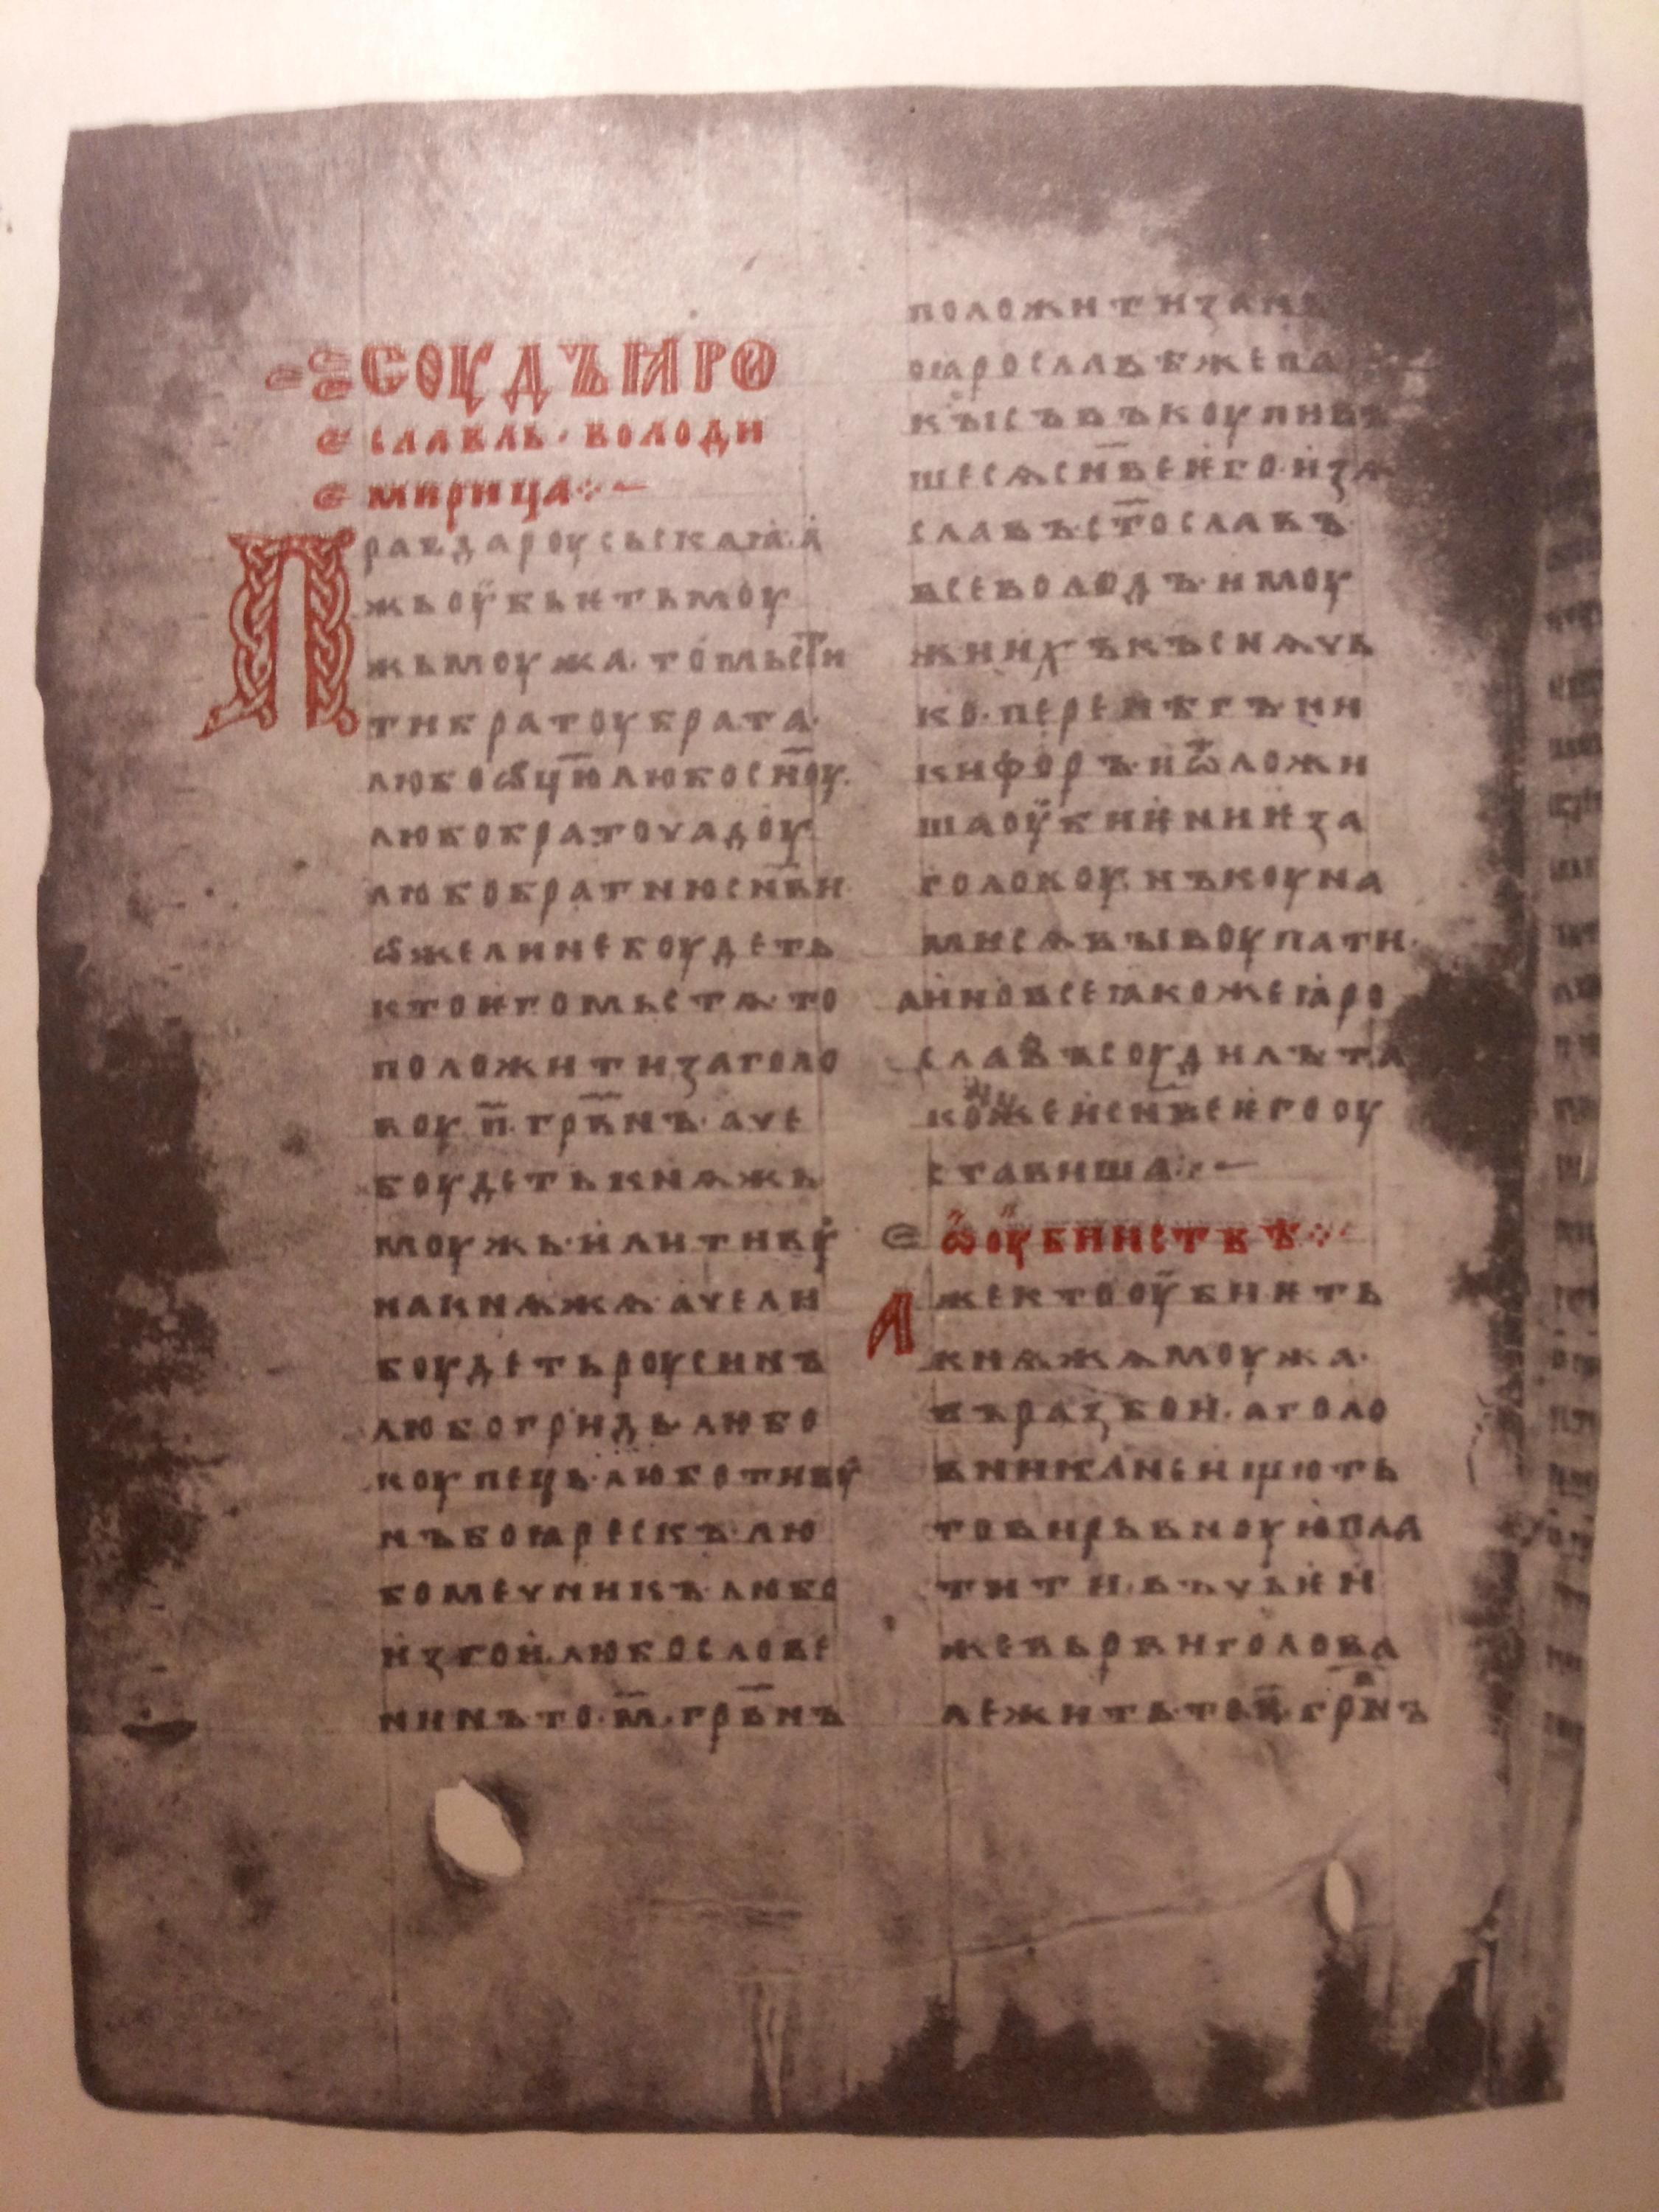 СОУДЪ ꙖРО
СЛАВЛЬ · ВОЛОДИ
МИРИЦА ⁘ —
ПРАВДА РОУСЬСКАꙖ · А
ЖЬ ОУБЬѤТЬ МОУ
ЖЬ МОУЖА · ТО МЬСТИ
ТИ БРАТОУ БРАТА ·
ЛЮБО ѠЦ҃Ю ЛЮБО СН҃ОУ ·
ЛЮБО БРАТОУЧАДОУ ·
ЛЮБО БРАТНЮ СН҃ВИ ·
ѠЖЕ ЛИ НЕ БОУДЕТЬ
КТО ѤГО МЬСТѦ · ТО
ПОЛОЖИТИ ЗА ГОЛО
ВОУ · П҃ · ГРВ҃НЪ · АЧЕ
БОУДЕТЬ КНѦЖЬ
МОУЖЬ · ИЛИ ТИВУ
НА КНѦЖѦ · АЧЕ ЛИ
БОУДЕТЬ РОУСИНЪ
ЛЮБО ГРИДЬ · ЛЮБО
КОУПЕЦЬ · ЛЮБО ТИВУ
НЪ БОꙖРЕСКЪ · ЛЮ
БО МЕЧНИКЪ · ЛЮБО
ИЗГОИ · ЛЮБО СЛОВЕ
НИНЪ ТО · М҃ · ГРВ҃НЪ
ПОЛОЖИТИ ЗА НЬ
ПО ꙖРОСЛАВѢ ЖЕ ПА
КЫ СЪВЪКОУПИВЪ
ШЕСѦ СН҃ВЕ ѤГО · ИЗѦ
СЛАВЪ · СТ҃ОСЛАВЪ ·
ВСЕВОЛОДЪ · И МОУ
ЖИ ИХЪ КЪСНѦЧЬ
КО · ПЕРЕНѢГЪ · НИ
КИФОРЪ · И ѾЛОЖИ
ША ОУБИѤНИѤ ЗА
ГОЛОВОУ · НЪ КОУНА
МИ СѦ ВЫКОУПАТИ ·
А ИНО ВСЕ ꙖКОЖЕ ꙖРО
СЛАВЪ СОУДИЛЪ ТА
КОЖЕ И СН҃ВЕ ѤГО ОУ
СТАВИША ⁘ —
Ѡ ОУБИИСТВѢ ⁘
АЖЕ КТО ОУБИѤТЬ
КНѦЖѦ МОУЖА ·
ВЪ РАЗБОИ · А ГОЛО
ВНИКА НЕ ИЩЮТЬ
ТО ВИРЬВНОУЮ ПЛА
ТИТИ · ВЪ ЧЬѤИ
ЖЕ ВЬРВИ ГОЛОВА
ЛЕЖИТЬ · ТО П҃ · ГРВ҃НЪ